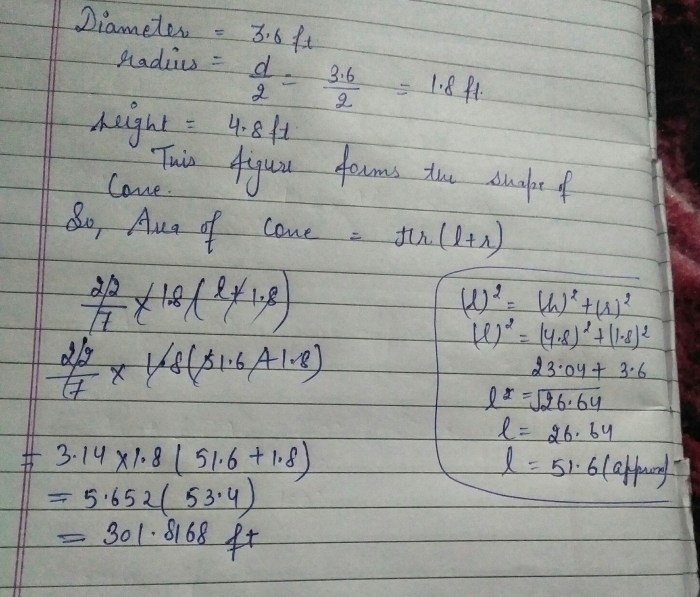 Diameter = 3.6 ft
radius = d/2 = 3.6/2 = 1.8 ft.
height = 4.8 ft.
This figure forms the shape of
Cone.
So, Area of cone = πr(l+r)
22/7 × 1.8 ( l + 1.8)
22/7 × 1.8 (51.6 + 1.8)
= 3.14 × 1.8 ( 51.6 + 1.8)
= 5.652 ( 53.4)
= 301.8168 ft
(l)² = (h)² + (r)²
(l)² = (4.8)² + (1.8)²
23.04 + 3.6
l² = √26.64
l = 26.64
l = 51.6 (approx)